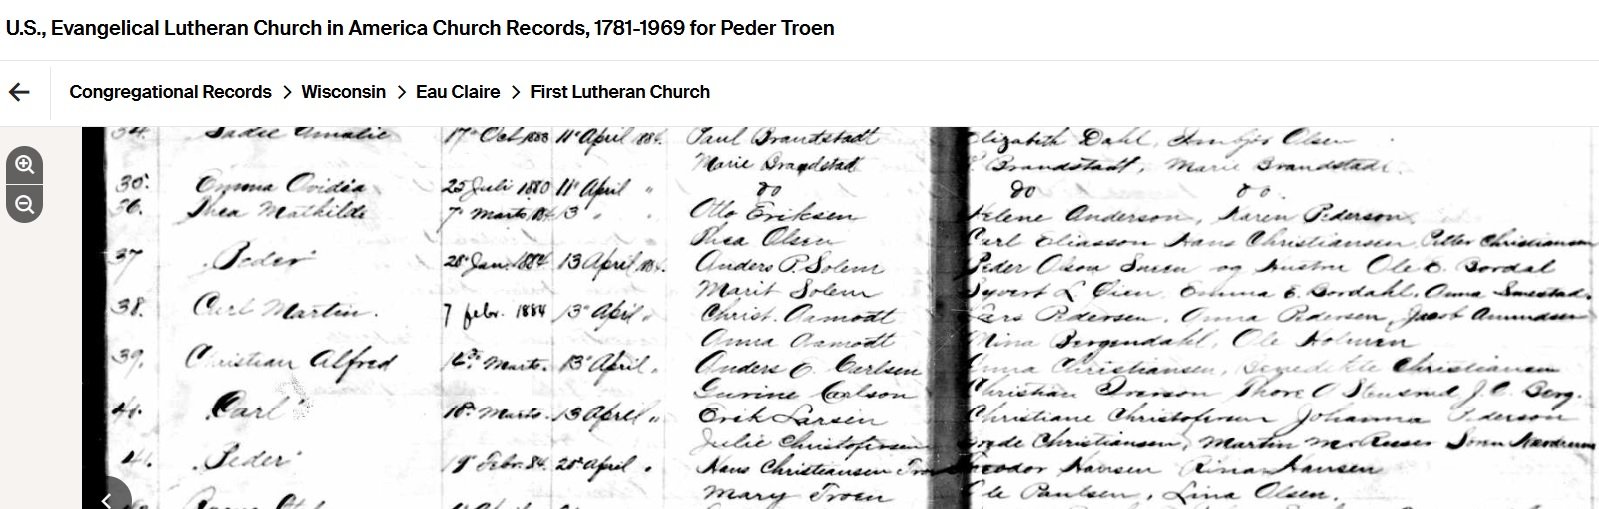 U.S., Evangelical Lutheran Church in America Church Records, 1781-1969 for Peder Troen
Congregational Records > Wisconsin > Eau Claire > First Lutheran Church
34. Sadie Amalie 17 Oct 1883 11 April 1884. Paul Brandstadt Elizabeth Dahl, Olsen
Marie Brandstad Brandstadt, Marie Brandstadt.
35. Emma Ovidia 25 Juli 1880 11 April " do do do.
36. Thea Mathilde 7 Marts 13 " Otto Eriksen Helene Anderson, Karen Pederson
Thea Olsen Carl Eliasson Hans Christiansen, Petter Christiansen
37 Peder 28 Jan. 1884 13 April Anders P. Solem Peder Olson og Hustru Ole E. Bordal
Marit Solem Syvert L Oien, Emma E. Bordahl, Anna
38. Carl Martin. 7 febr. 1884 13 April " Christ. Aamodt Lars Pedersen, Anna Pedersen, Jacob Amundsen
Anna Aamodt Nina Bergendahl, Ole Holmen
39. Christian Alfred Marts. 13 April " Anders C. Carlsen Anna Christiansen, Benedikte Christiansen
Gurine Carlson Christian Iverson Thore O J. C. Berg.
Carl 18 Marts. 13 April " Erik Larsen Christiane Christofersen Johanna Pederson
Julie Christofersen Christiansen, Martin
41. Peder 19 Febr. 84. 20 April " Hans Christiansen Troen Teodor Hansen Rina Hansen
Mary Troen Ole Paulsen, Lina Olsen.